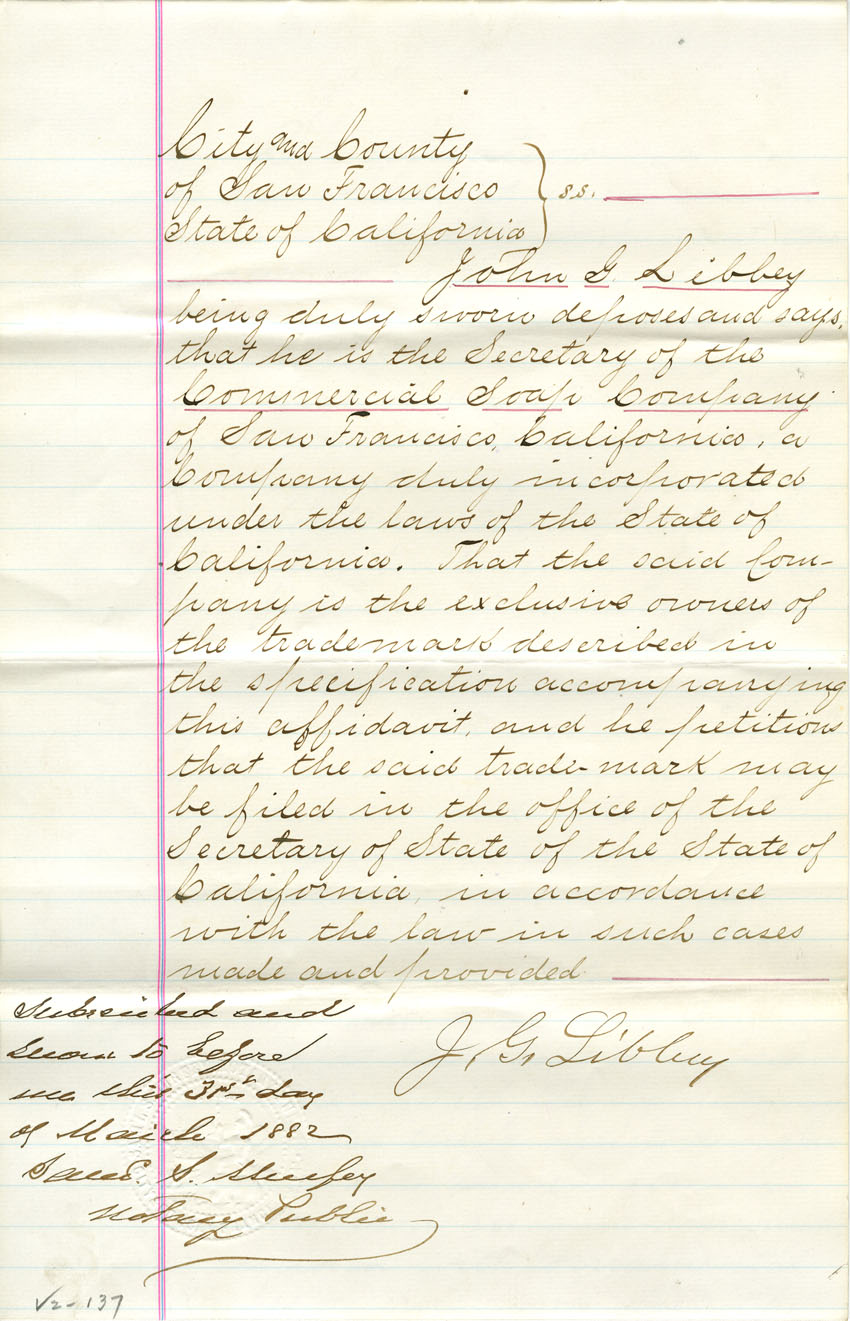 City and County
of San Francisco } ss.
State of California
John G. Libbey
being duly sworn deposes and says,
that he is the Secretary of the
Commercial Soap Company
of San Francisco, California, a
Company duly incorporated
under the laws of the State of
California. That the said Com-
pany is the exclusive owners of
the trademark described in
the specification accompanying
this affidavit, and he petitions
that the said trade-mark may
be filed in the office of the
Secretary of State of the State of
California, in accordance
with the law in such cases
made and provided
J. G. Libbey
Subscribed and
sworn to before
me this 31st day
of March 1882
Saml. S. Murfey
Notary Public
V2-137